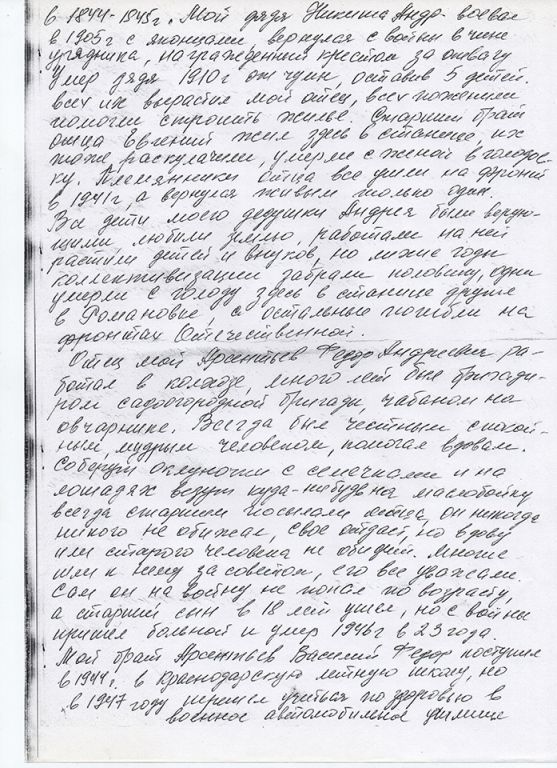 в 1844-1845г. Мой дядя Никита Андр. воевал
в 1905г с японцами, вернулся с войны в чине
урядника, награжденный крестом за отвагу
Умер дядя 1910г от чумы, оставив 5 детей.
всех их вырастил мой отец, всех поженили
помогли строить жилье. Старший брат
отца Евгений жил здесь в станице, их
тоже раскулачили, умерли с женой в голодов-
ку. Племянники отца все ушли на фронт
в 1941г, а вернулся живым только один.
Все дети моего дедушки Андрея были верую-
щими, любили землю, работали на ней
растили детей и внуков, но лихие годы
коллективизации забрали половину, одни
умерли с голоду здесь в станице другие
в Романовке, а остальные погибли на
фронтах Отечественной.
Отец мой Арентьев Федор Андреевич ра-
ботал в колхозе, много лет был бригади-
ром садоогородной бригады чабаном на
овчарнике. Всегда был честным спокой-
ным, мудрым человеком, помогал вдовам.
Соберут с семечками и на
лошадях везут куда-нибудь на маслобойку
всегда старшим посылали отца, он никогда
никого не обижал, свое отдаст, но вдову
или старого человека не обидит. Многие
шли к нему за советом, его все уважали.
Сам он на войну не попал по возрасту,
а старший сын в 18 лет ушел, но с войны
пришел больной и умер 1946г в 23 года.
Мой брат Арентьев Василий Федор поступил
в 1944г. в Краснодарскую летную школу, но
в 1947 году перешел учиться по здоровью в
военное автомобильное училище